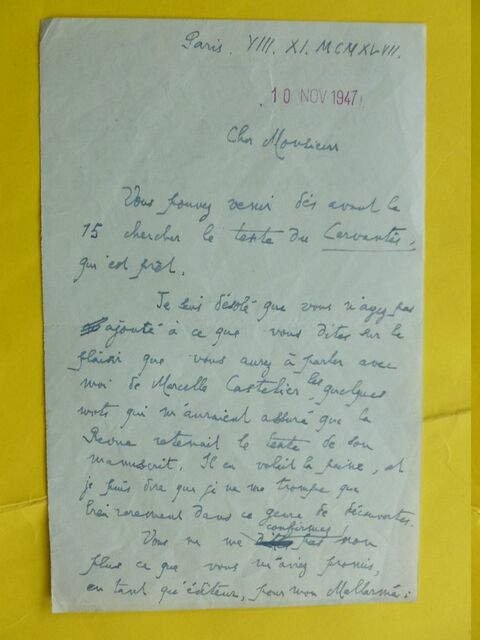 Paris. VIII. XI. MCMXLVII.
10 NOV 1947
Cher Monsieur
Vous pouvez venir dès avant le
15 chercher le texte du Cervantès,
qui est prêt.
Je suis désolé que vous n'ayez pas
ajouté à ce que vous dites sur le
plaisir que vous aurez à parler avec
moi de Marcelle les quelques
mots qui m'auraient assuré que la
Revue retenait le texte de son
manuscrit. Il en valait la peine, et
je puis dire que je ne me trompe que
bien rarement dans ce genre de découvertes.
Vous ne me confirmez pas non
plus ce que vous m'aviez promis,
en tant qu'éditeur, pour mon Mallarmé :